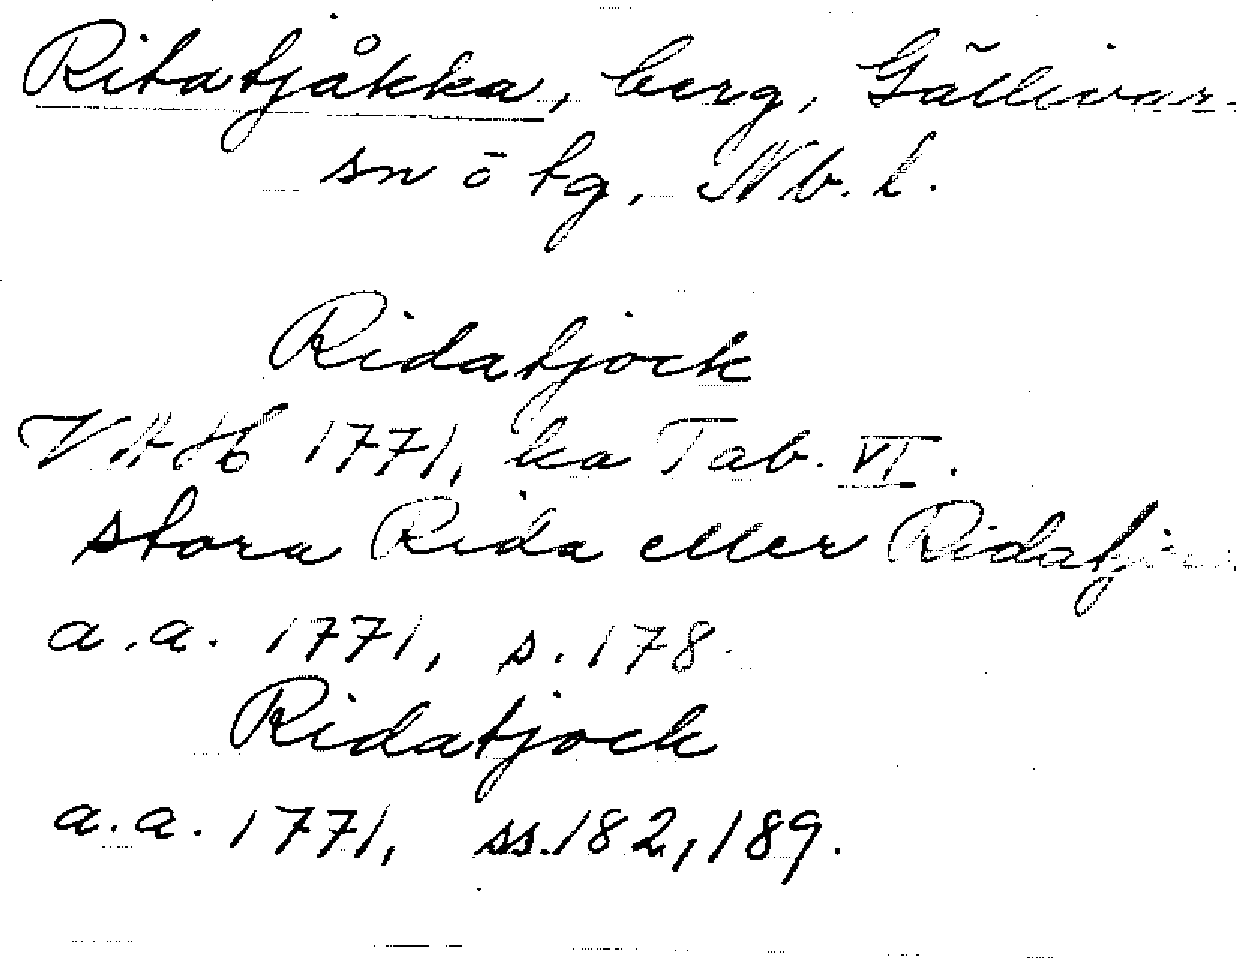 Ritatjåkka, berg, Gällivar-
sn ö tg, Nb. l.
Ridatjock
VAH 1771, ka Tab. VI.
stora Rida eller
a.a. 1771, s. 178.
Ridatjock
a.a. 1771, ss. 182, 189.